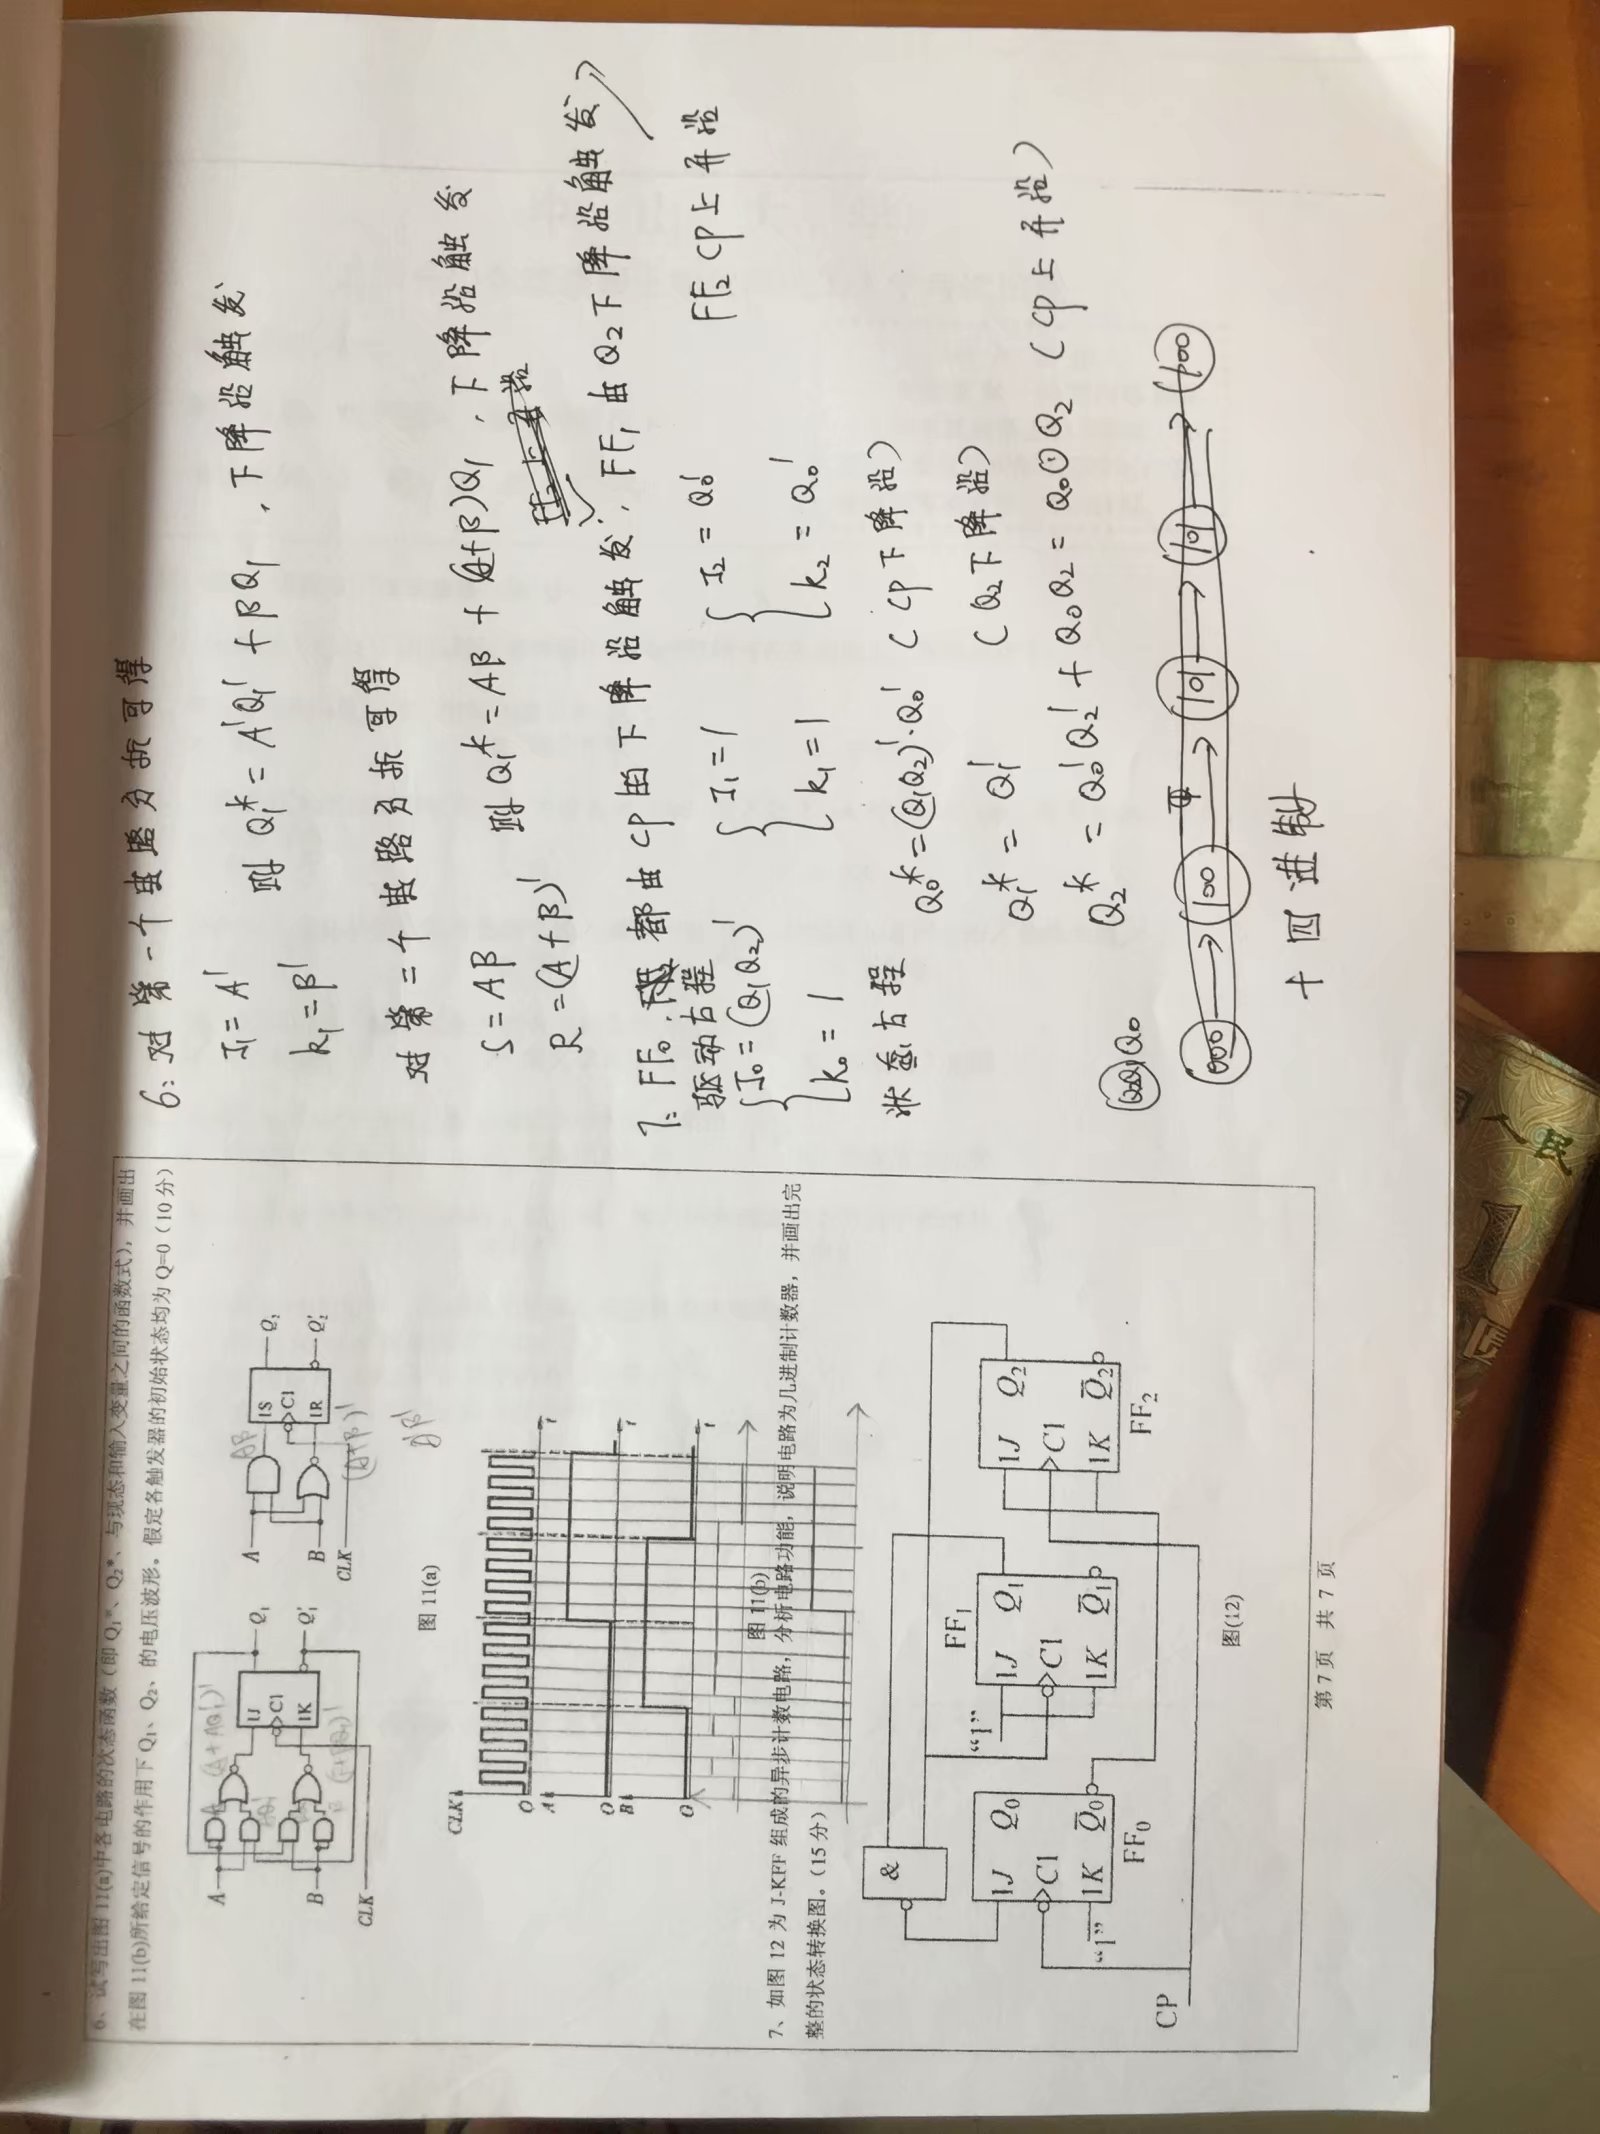 6、试写出图 11(a)中各电路的次态函数（即 Q₁*、Q₂*、与现态和输入变量之间的函数式），并画出
在图 11(b)所给定信号的作用下 Q₁、Q₂、的电压波形。假定各触发器的初始状态均为 Q=0（10 分）
A
B
CLK
1J
C1
1K
Q₁
Q₁'
A
B
CLK
AB
(A+B)'
1S
C1
1R
Q₂
Q₂'
AB'
图 11(a)
CLK
O
A
O
B
O
t
t
t
图 11(b)
7、如图 12 为 J-KFF 组成的异步计数电路，分析电路功能，说明电路为几进制计数器，并画出完
整的状态转换图。（15 分）
&
1J Q₀
C1
1K Q̅₀
"1"
FF₀
FF₁
"1"
1J Q₁
C1
1K Q̅₁
1J Q₂
C1
1K Q̅₂
FF₂
CP
图(12)
第 7 页 共 7 页
6: 对第一个电路分析可得
J₁=A'
k₁=B'
则 Q₁*=A'Q₁'+BQ₁ , 下降沿触发
对第二个电路分析可得
S=AB
R=(A+B)'
则 Q₁*=AB+(A+B)Q₁ , 下降沿触发
7: FF₀ 都由 CP 由下降沿触发, FF₁ 由 Q₂ 下降沿触发
FF₂ CP 上升沿
驱动方程
J₀=(Q₁Q₂)'
k₀=1
J₁=1
k₁=1
J₂=Q₀'
k₂=Q₀'
状态方程
Q₀*=(Q₁Q₂)'·Q₀' (CP下降沿)
Q₁*=Q₁' (Q₂下降沿)
Q₂*=Q₀'Q₂'+Q₀Q₂=Q₀⊙Q₂ (CP上升沿)
000→100→101→101→100
十四进制